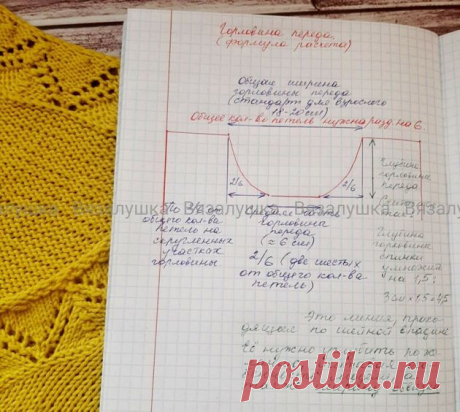 Горловина переда
(формула расчета)
Общая ширина
горловины переда
(стандарт для взрослого
18-20см)
Общее кол-во петель нужно разд. на 6.
2/6
2/6
Глубина
горловины
переда
общего кол-ва
петель на
скругленных
участках
горловины
Средняя часть
горловины
переда
(≈ 6 см)
2/6 (две шестых
от общего кол-ва
петель)
Глубина
горловины
спинки
умножить
на 1,5:
3см×1,5=4,5
Вязалушка Вязалушка Вязалушка
Это линия, прохо
дящая по шейной
Её нужно углубить
postila.ru